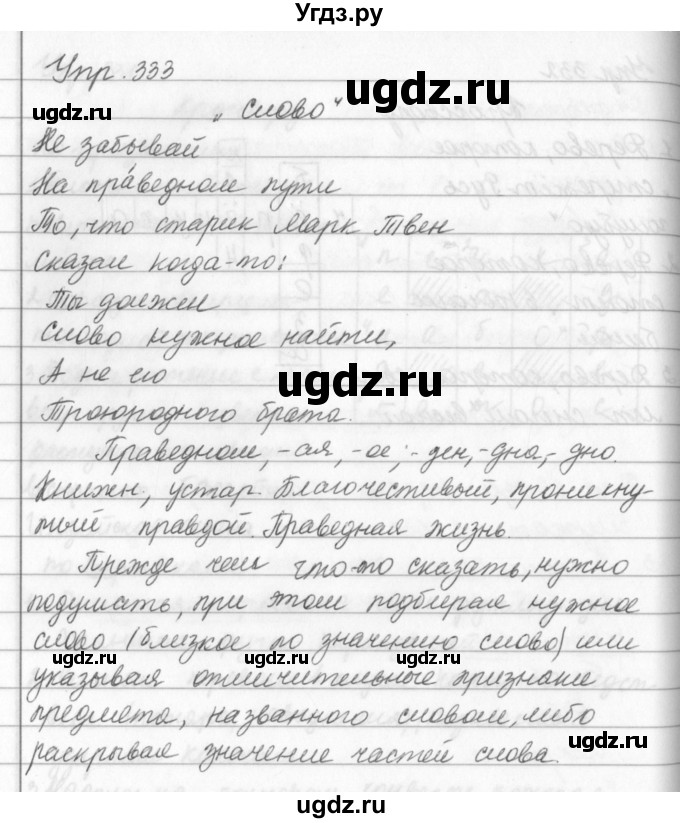 Угдз.ру
Упр. 333
ugdz.ru
ugdz.ru
„Слово"
Не забывай
На пра́ведном пути
То, что старик Марк Твен
Сказал когда-то:
Ты должен
Слово нужное найти,
А не его
ugdz.ru
Троюродного брата.
Праведном, -ая, -ое; -ден, -дна, -дно.
Книжн., устар. Благочестивый, проникну-
тый правдой. Праведная жизнь.
Прежде чем что-то сказать, нужно
подумать, при этом подбирая нужное
слово (близкое по значению слово) или
ugdz.ru ugdz.ru ugdz.ru
указывая отличительные признаки
предмета, названного словом, либо
ugdz.ru
раскрывая значение частей слова.
ugdz.ru